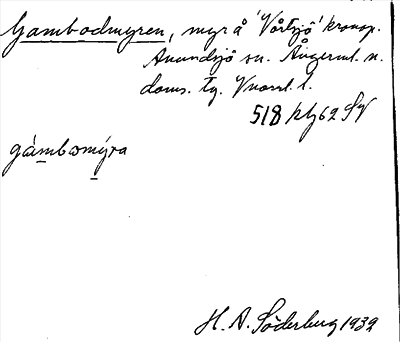 Gambodmyren, myr å 'Vårtsjö' kronop.
Anundsjö sn. Ångerml. n.
doms. tg. Vnorrl. l.
518 klg 62 SV
gàmbωmýra
H. A. Söderberg 1939